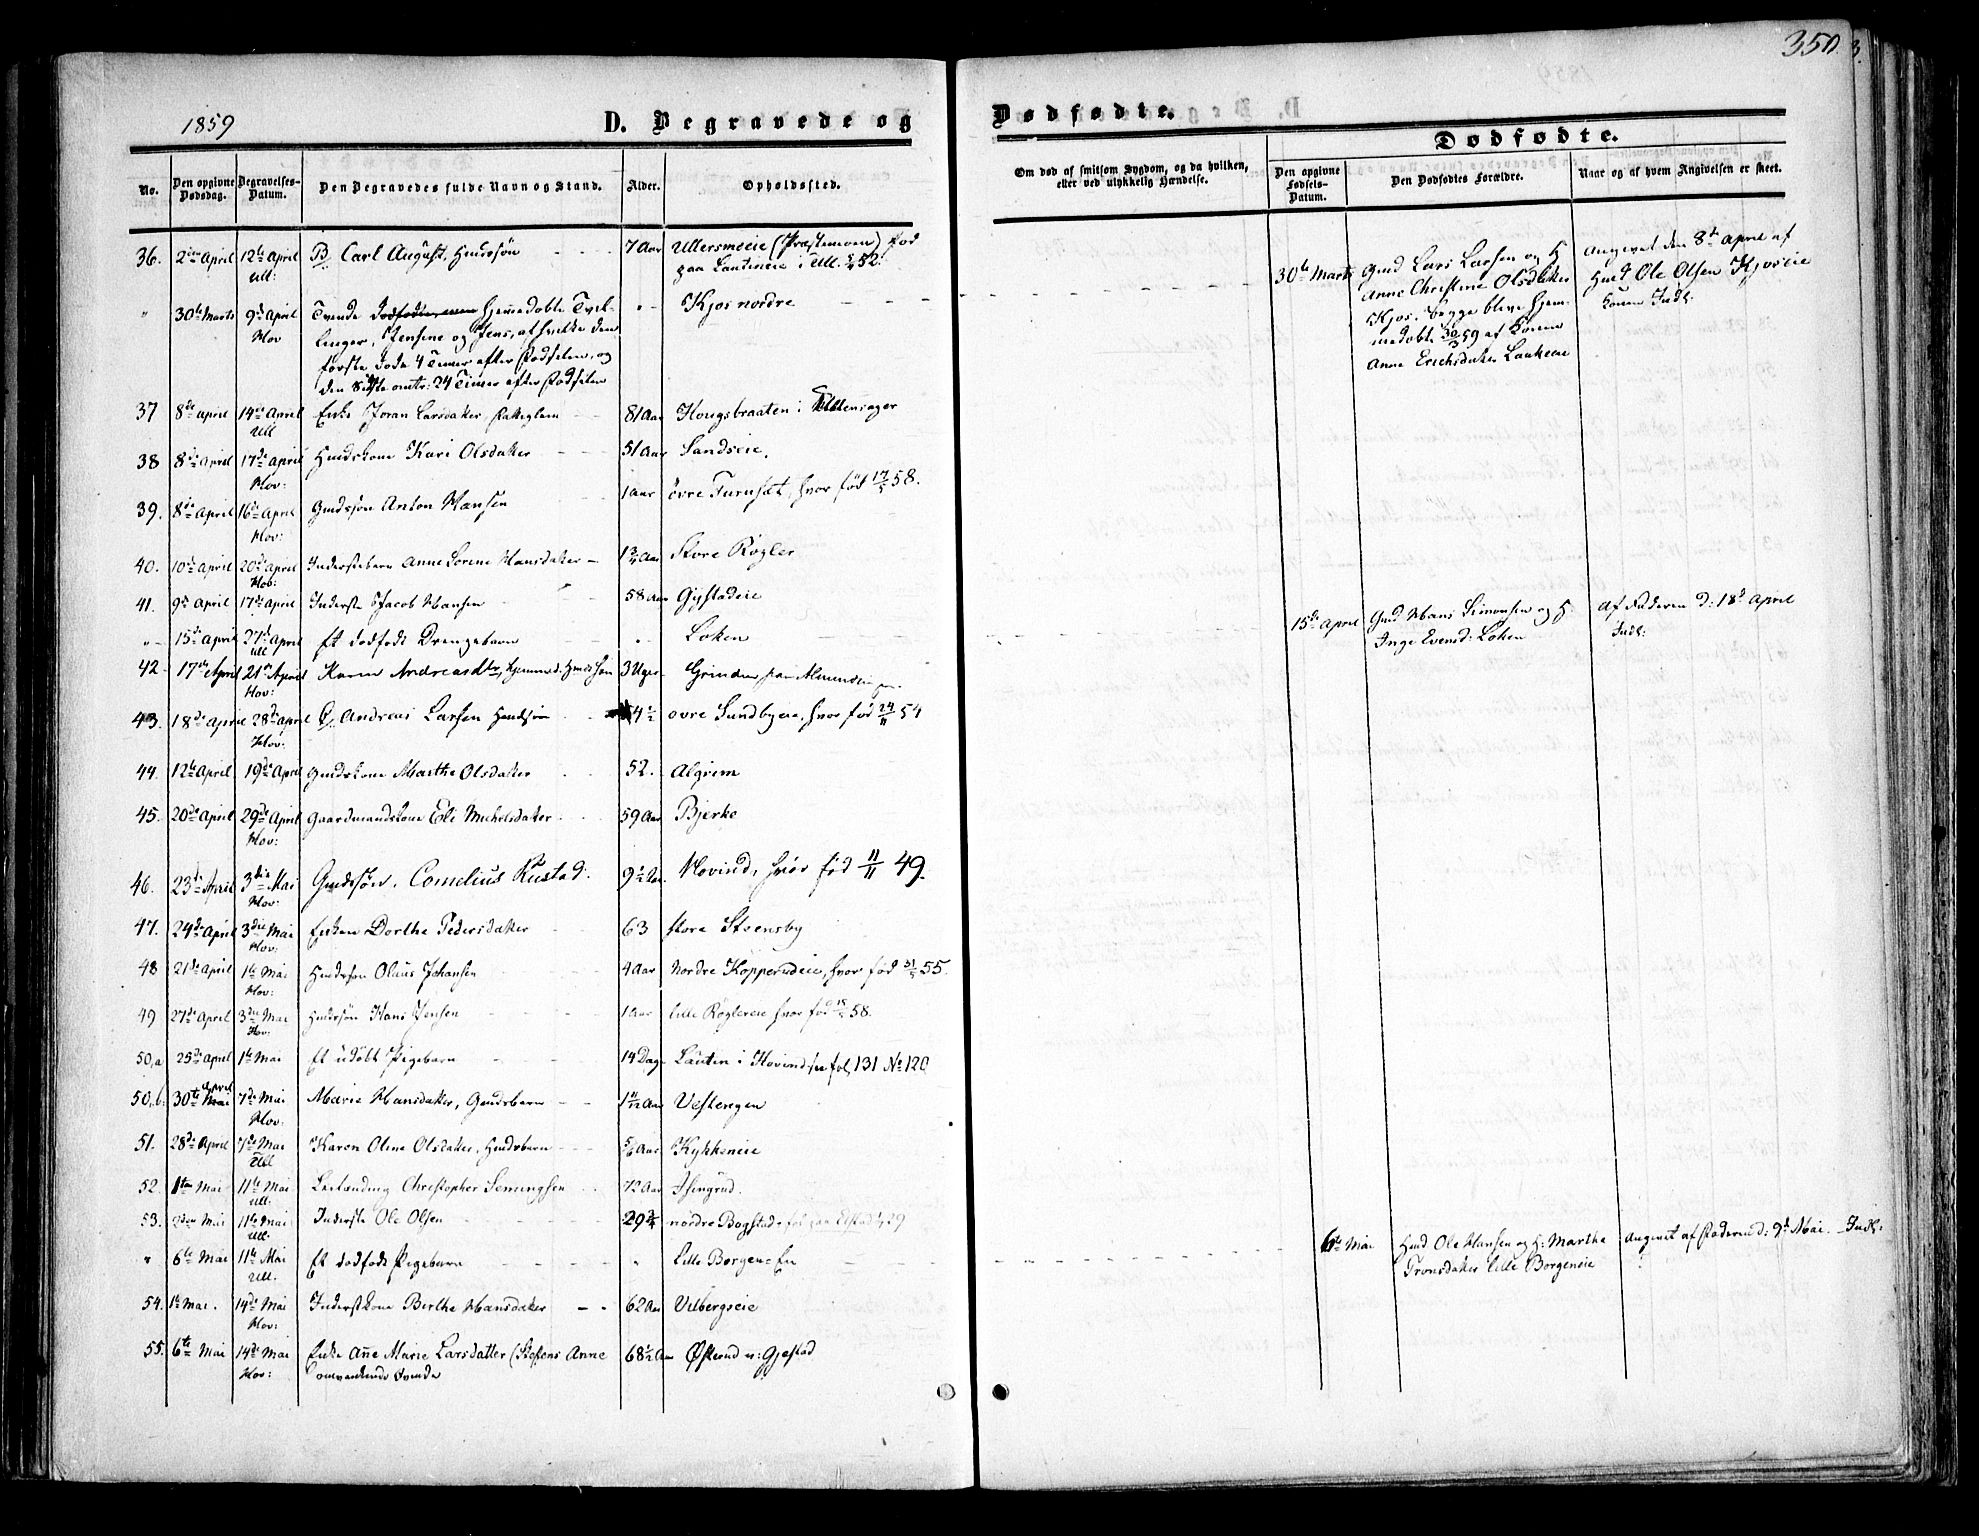 350.
1859
D. Begravede og
Dødfødte.
Dødfødte.
No.
Den opgivne Dødsdag.
Begravelses-Datum.
Den Begravedes fulde Navn og Stand.
Alder.
Opholdssted.
Om død af smitsom Sygdom, og da hvilken, eller ved ulykkelig Hændelse.
Den opgivne Fødsels-Datum.
Den Dødfødtes Forældre.
Naar og af hvem Angivelsen er skeet.
36. 2den April 12te April Carl August, 7 Aar Ullersmoeie (Præstemoen) fød
Ull: paa Lautineie i Ull. 52.
30te Marts Gmd Lars Larsen og H
Anne Christine Olsdatter
Kjos. begge bleve hjem-
medøbte 30/3 59 af Konen
Anne Erichsdatter
Angivet den 8de April af
Hmd Ole Olsen Kjoseie
" 30te Marts 9de April Tvende dødfødte, men hjemmedøbte Tvil- " Kjos nordre
Hov linger, Jensine og Jens, af hvilke den
første døde 4 Timer efter Fødselen, og
den sidste omtr: 24 Timer efter Fødselen
37 8de April 14de April Enke Joran Larsdatter, 81 Aar Hougsbraaten i
Ull
38 8de April 17de April Huusmandskone Kari Olsdatter 51 Aar Sandseie.
Hov:
39. 8de April 16de April Gmdssøn Anton Hansen 1 Aar øvre Furuset, hvor fød 58.
Hov:
40. 10de April 20de April Inderstebarn Anne Lorene Hansdatter Aar Store Røgler
Hov:
41. 9de April 17de April Inderste Jacob Hansen 58 Aar Gystadeie
" 15de April 27de April Et dødfødt Drengebarn " Løken
Ull
15de April Gmd Hans Simonsen og H.
Inge Evensd: Løken
Af Faderen d: 18de April
Indl:
42 17de April 21de April Karen Andreasdtr, 3 Uger Grinden, paa
Hov:
43. 18de April 28de April Andreas Larsen 4½ øvre Sundbyeie, hvor fød 24/11 54
Hov:
44. 12te April 19de April Gmdskone Marthe Olsdatter 52. Algrim
45. 20de April 29de April Gaardmandskone Eli Michelsdatter 59 Aar Bjerke
Hov:
46. 23de April 3die Mai Gmdssøn, Cornelius Rustad. 9½ Aar Hovind, hvor fød 11/11 49.
Hov:
47. 24de April 3die Mai Enken Dorthe Pedersdatter 63 Store Steensby
Hov:
48 21de April 1te Mai Olaus Johansen 4 Aar Nordre Kopperudeie, hvor fød 55.
Hov:
49 27de April 3die Mai Hans Jensen 1 Aar lille Røglereie hvor fød 58.
Hov:
50,a 25de April 1te Mai Et udøbt Pigebarn 14 Dage Lautin i Hovind, see fol. 131 No 120
50,b. 30te April Mai 7de Mai Marie Hansdatter, Gmdsbarn 1 Aar Vestengen
Hov:
51. 28de April 7de Mai Karen Oline Olsdatter, Hmdsbarn Aar Kykkeneie
Ull
52. 1ten Mai 11te Mai Christopher Semingsen 72 Aar Isingrud.
Ull:
53. 2den Mai 11te Mai Inderste Ole Olsen 29¾ nordre Bogstad
Ull:
" 6te Mai 11te Mai Et dødfødt Pigebarn " Lille Borgen-Eie
Ull.
6te Mai Hmd Ole Hansen og H: Marthe
Tronsdatter Lille Borgeneie
angivet af Faderen d: 9de Mai. Indl:
54. 1te Mai. 14de Mai Inderstkone Birthe Hansdatter 62 Aar Vilbergseie
Hov:
55. 6te Mai 14de Mai Enke Anne Marie Larsdatter ( Anne 68½ Aar Østerud u: Gjestad
Hov: omvankende